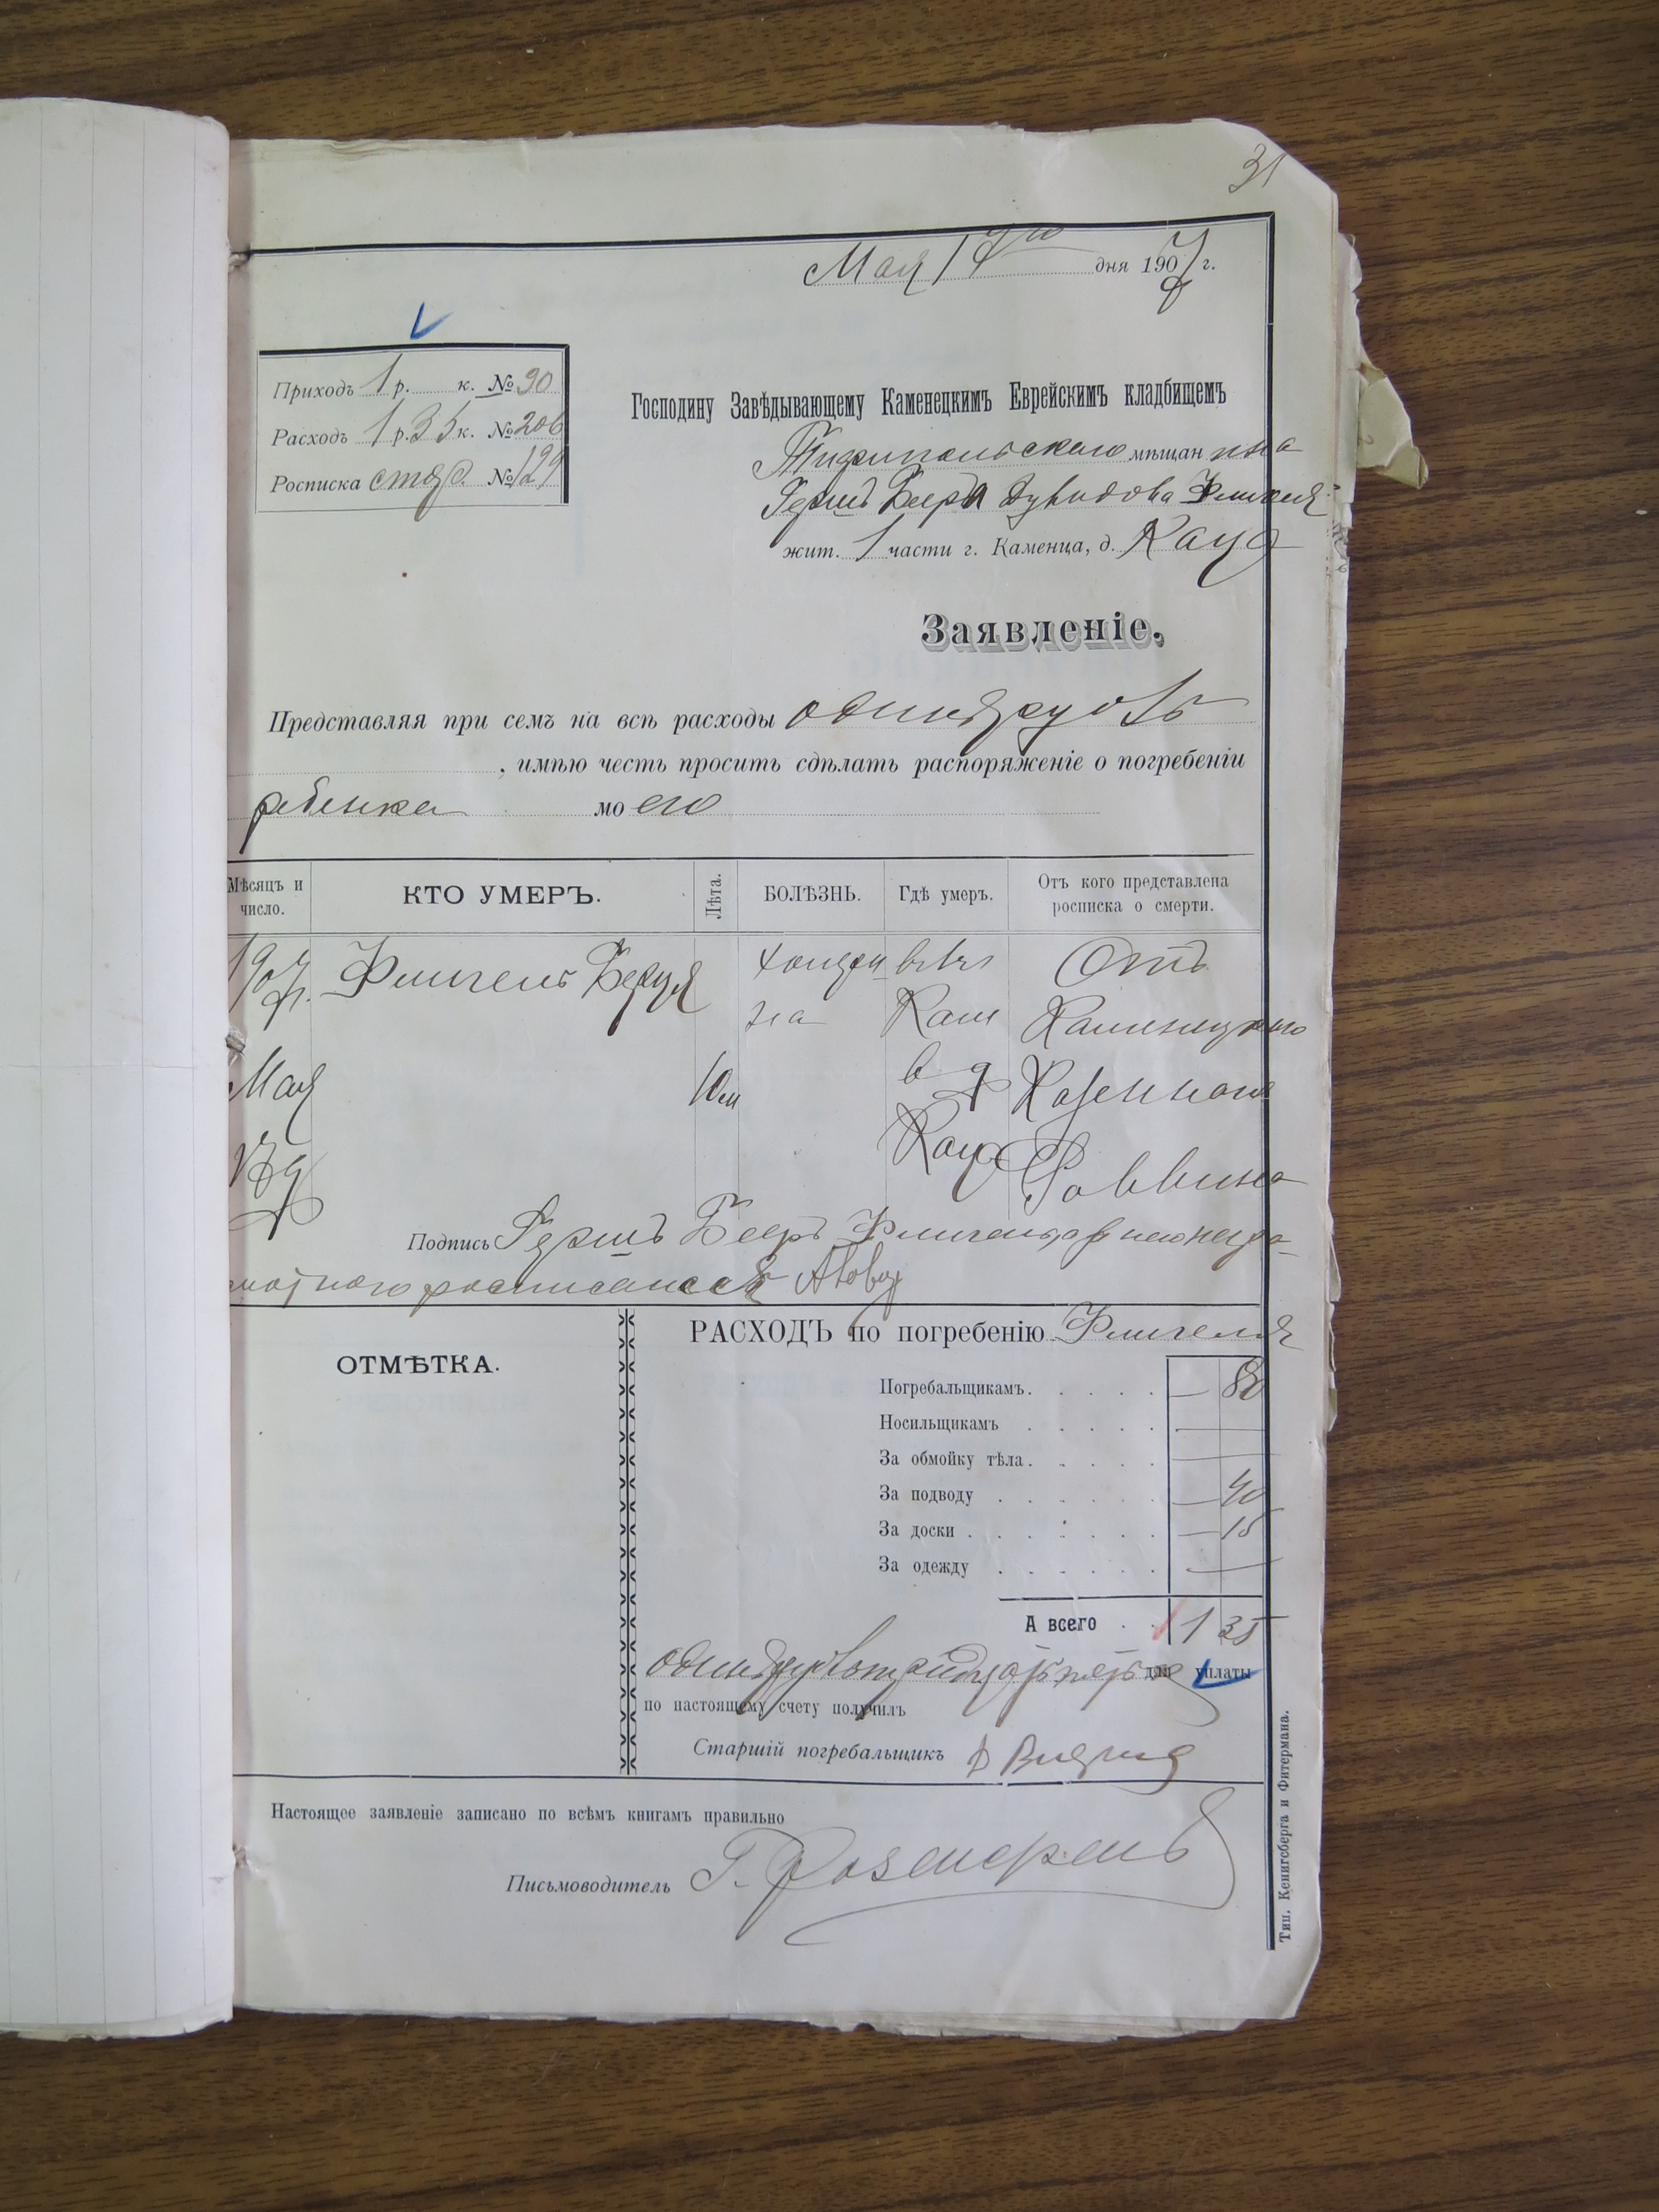 31
Мая 17го дня 1907 г.
Приходъ 1 р. к. № 90
Расходъ 1 р. 35 к. № 206
Росписка № 129
Господину Завѣдывающему Каменецкимъ Еврейскимъ кладбищемъ
мѣщанина
Гершъ Беера Дувидова Флигеля
жит. 1 части г. Каменца, д. Каца
Заявленіе.
Представляя при семъ на всѣ расходы одинъ рубль
, имѣю честь просить сдѣлать распоряженіе о погребеніи
ребенка моего
Мѣсяцъ и число. КТО УМЕРЪ. Лѣта. БОЛѢЗНЬ. Гдѣ умеръ. Отъ кого представлена росписка о смерти.
1907 Флигель Отъ
г. на Кам Каменецкаго
Мая 10 м в д Казеннаго
17 д Каца Раввина
Подпись Гершъ Бееръ Флигель а за него негра-
мотного росписался
РАСХОДЪ по погребенію Флигеля
ОТМѢТКА.
Погребальщикамъ. — 80
Носильщикамъ —
За обмойку тѣла. —
За подводу — 40
За доски — 15
За одежду —
А всего 1 35
одинъ рубль тридцать пять к для уплаты
по настоящему счету получилъ
Старшій погребальщикъ
Настоящее заявленіе записано по всѣмъ книгамъ правильно
Письмоводитель Г.
Тип. Кенигсберга и Фитермана.